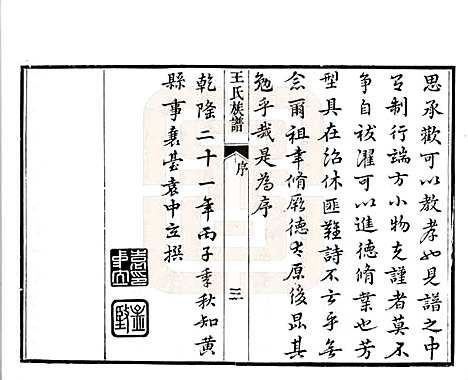 思承歡可以教孝如見譜之中
有制行端方小物克謹者莫不
爭自祓濯可以進德脩業也芳
型具在紹休匪難詩不云乎無
念爾祖聿脩厥德太原後昆其
勉乎哉是為序
王氏族譜
序
三
乾隆二十一年丙子季秋知黃
縣事襄臺袁中立撰